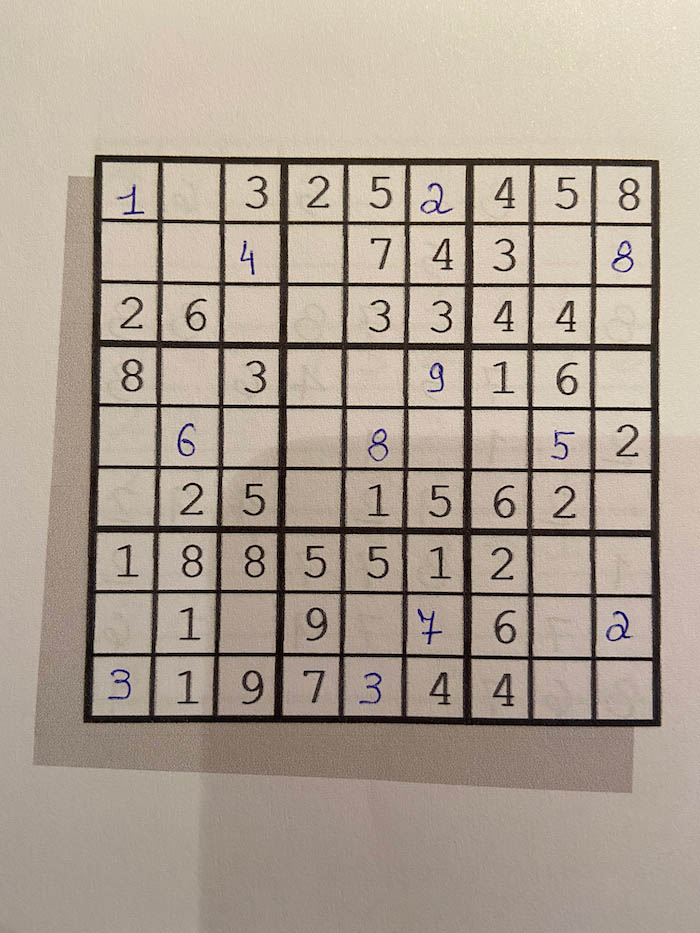 1 3 2 5 2 4 5 8
4 7 4 3 8
2 6 3 3 4 4
8 3 9 1 6
6 8 5 2
2 5 1 5 6 2
1 8 8 5 5 1 2
1 9 7 6 2
3 1 9 7 3 4 4